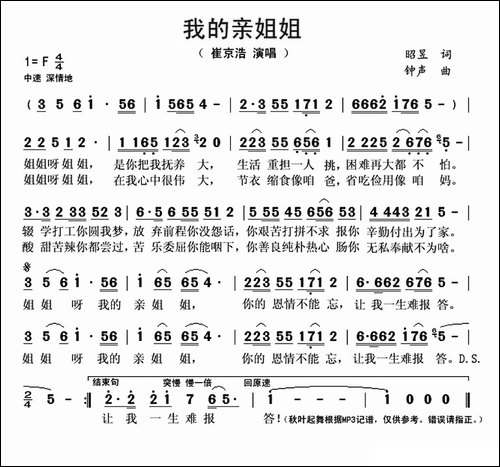 我的亲姐姐
（ 崔京浩 演唱 ）
1=F 4/4
昭昱 词
中速 深情地
钟声 曲
( 3 5 6 i· 56 | i 565 4 - | 2·3 55 171 2 | 6662 i76 5 - )
2 2 5 1 2 - | 1165 123 20 | 5·5 55 171 2 | 2 225 2 676 5 - |
姐姐呀姐姐， 是你把我抚养 大， 生活 重担一人 挑，困难再大都 不 怕。
姐姐呀姐姐， 在我心中很伟 大， 节衣 缩食像咱 爸，省吃俭用像 咱 妈。
3·3 2 33 5 - | 1·6 55 5 2 - | 5 55 45 656 53 | 4 443 21 5 - |
辍 学打工你圆我梦，放 弃前程你没怨话，你艰苦打拼不求 报你 辛勤付出为了家。
酸 甜苦辣你都尝过，苦 乐委屈你能咽下，你善良纯朴热心 肠你 无私奉献不为啥。
3 5 6 i· 56 | i 65 65 4 - | 2·3 55 171 2 | 6·662 676 5 - |
姐 姐 呀 我的 亲 姐 姐， 你的 恩情不能 忘，让 我一生难报 答。
3 5 6 i· 56 | i 65 65 4 - | 2·3 55 171 2 | 6·662 i76 5 - |
姐 姐 呀 我的 亲 姐 姐， 你的 恩情不能 忘，让我一生难报 答。D.S.
结束句 突慢 慢一倍 回原速
2/4 5 - :‖ 2· 2 | 2 1 7 6 | 5 - | 5 - ‖
让 我 一 生 难 报 答!（秋叶起舞根据MP3记谱，仅供参考、错误请指正。）